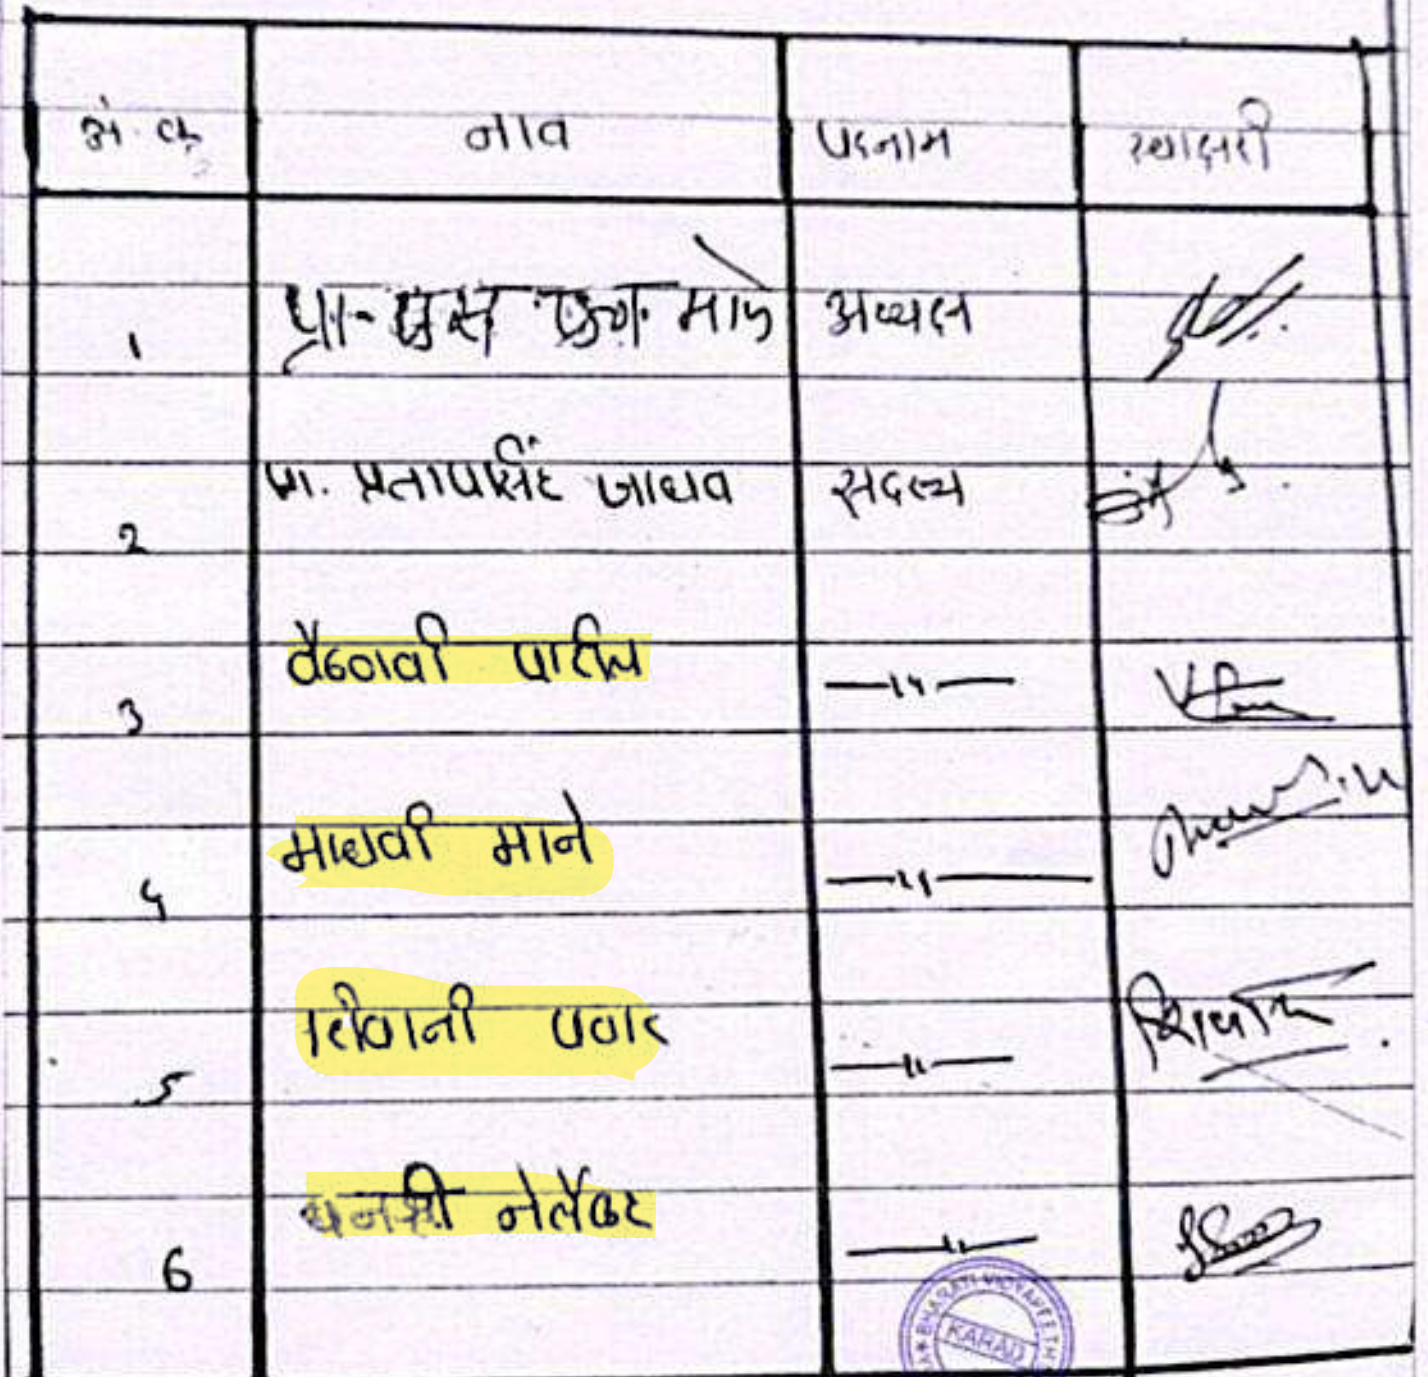 अ. क्र नाव पदनाम स्वाक्षरी
1 प्रा. एस एम. माने अध्यक्ष
2 प्रा. प्रतापसिंह जाधव सदस्य
3 वैष्णवी पाटील —〃—
4 माधवी माने —〃—
5 शिवानी पवार —〃—
6 धनश्री नेर्लेकर —〃—
BHARATI VIDYAPEETH
KARAD